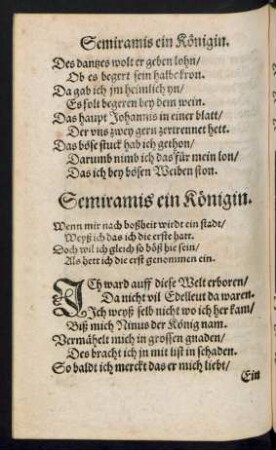 Semiramis ein Königin.
Des dantzes wolt er geben lohn/
Ob es begert sein halbe kron.
Da gab ich jm heimlich yn/
Es solt begeren bey dem wein.
Das haupt Johannis in einer blatt/
Der vns zwey gern zertrennet hett.
Das böse stuck hab ich gethon/
Darumb nimb ich das für mein lon/
Das ich bey bösen Weiben ston.
Semiramis ein Königin.
Wenn mir nach boßheit wirdt ein stadt/
Weyß ich das ich die erste hatt.
Doch wil ich gleich so böß hie sein/
Als hett ich die erst genommen ein.
ICh ward auff diese Welt erboren/
Da nicht vil Edelleut da waren.
Ich weyß selb nicht wo ich her kam/
Biß mich Ninus der König nam.
Vermähelt mich in grossen gnaden/
Des bracht ich jn mit list in schaden.
So baldt ich merckt das er mich liebt/
Ein